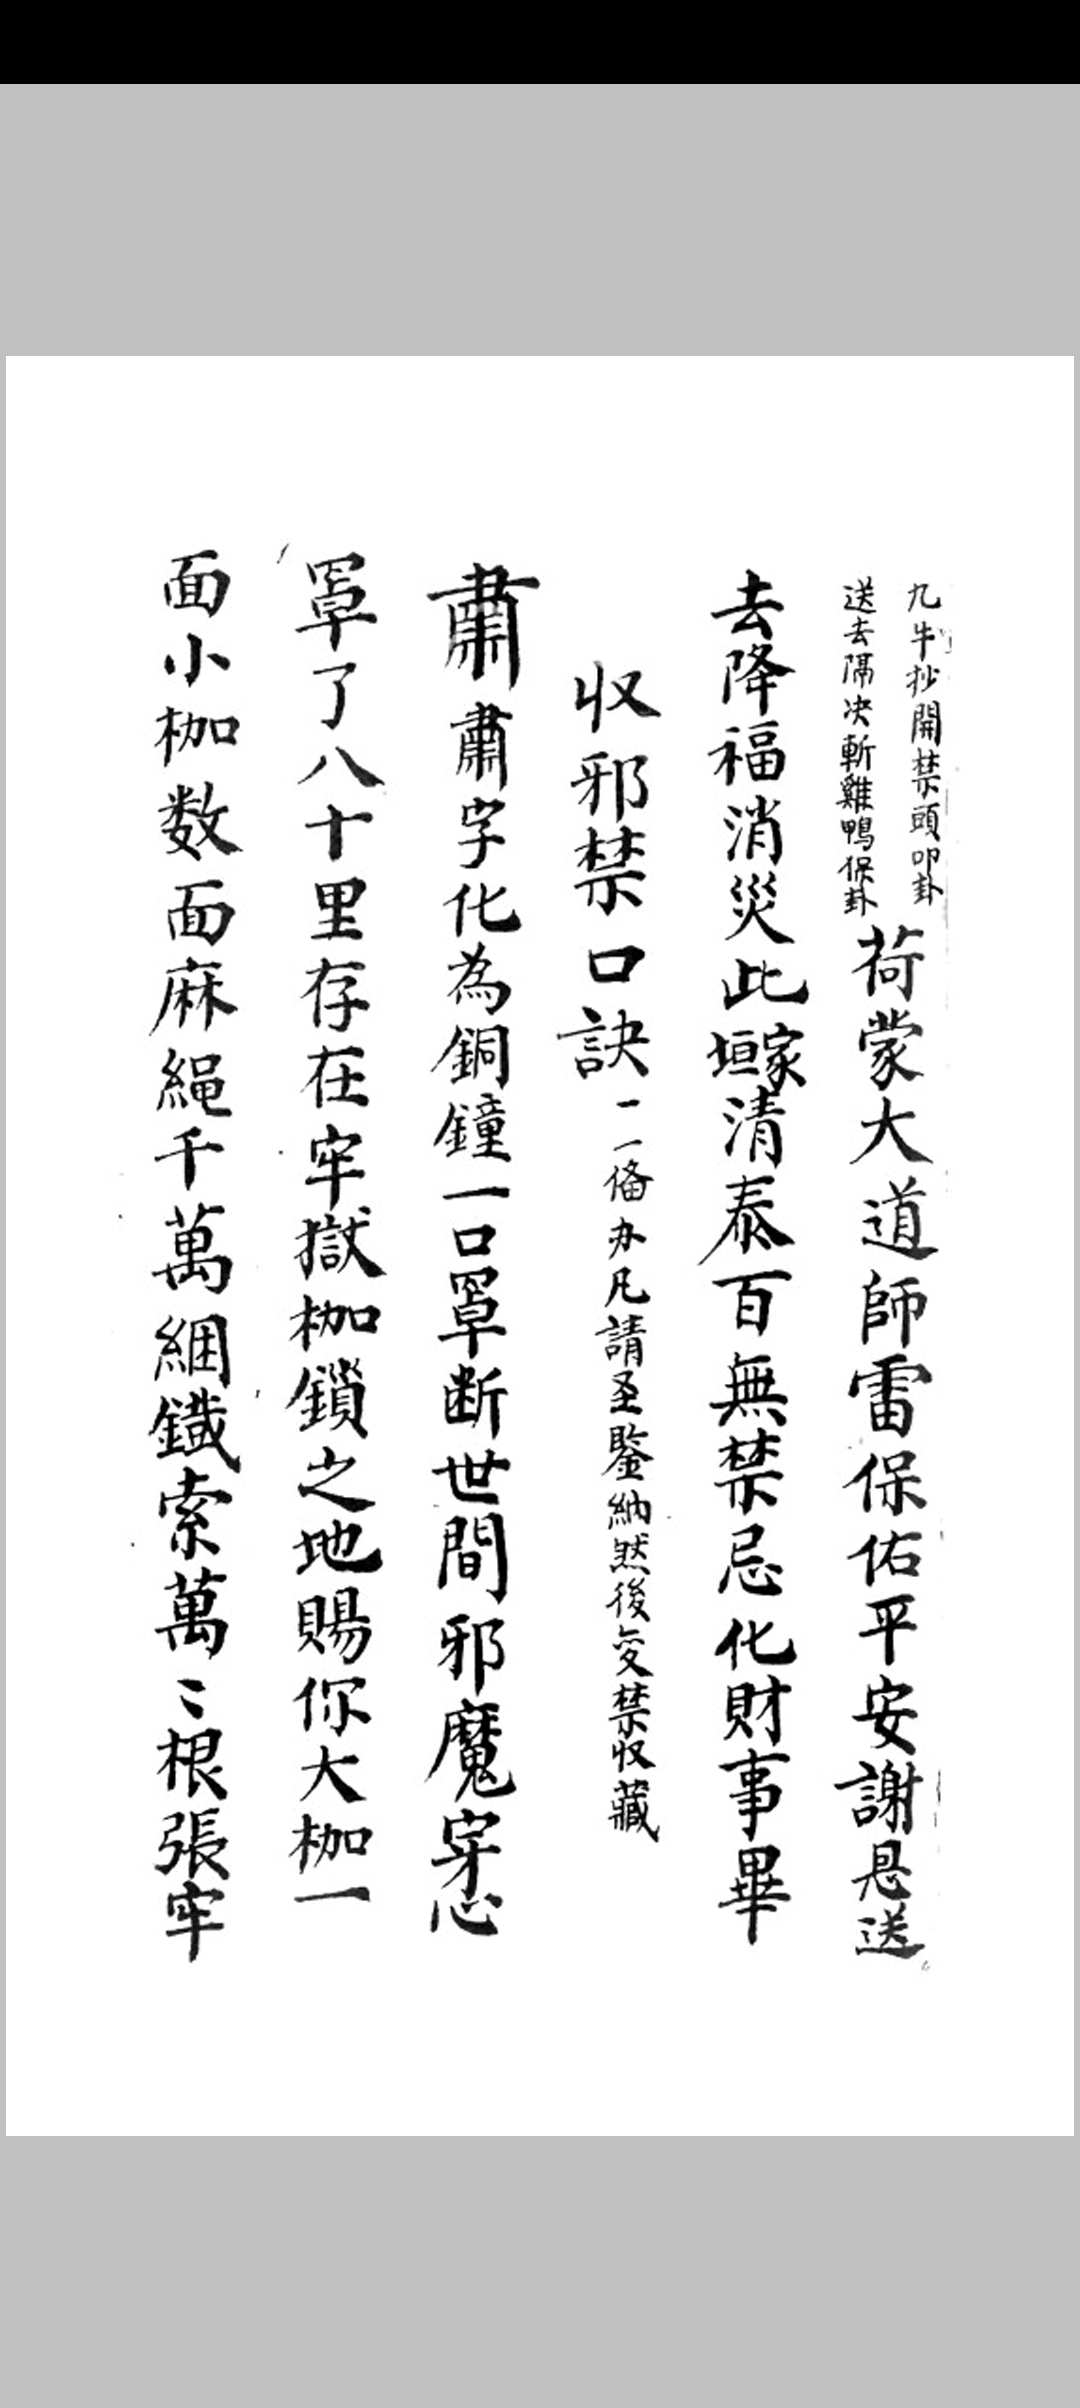 九牛抄開禁頭叩卦
送去隔决斬雞鴨保卦
荷蒙大道師雷保佑平安謝恩送
去降福消災此家垣清泰百無禁忌化財事畢
收邪禁口訣
一一俻办凡請圣鑒納然後変禁收藏
肅肅字化為銅鐘一口罩断世間邪魔穿心
罩了八十里存在牢獄枷鎖之地賜你大枷一
面小枷数面麻繩千萬綑鐡索萬〻根張牢